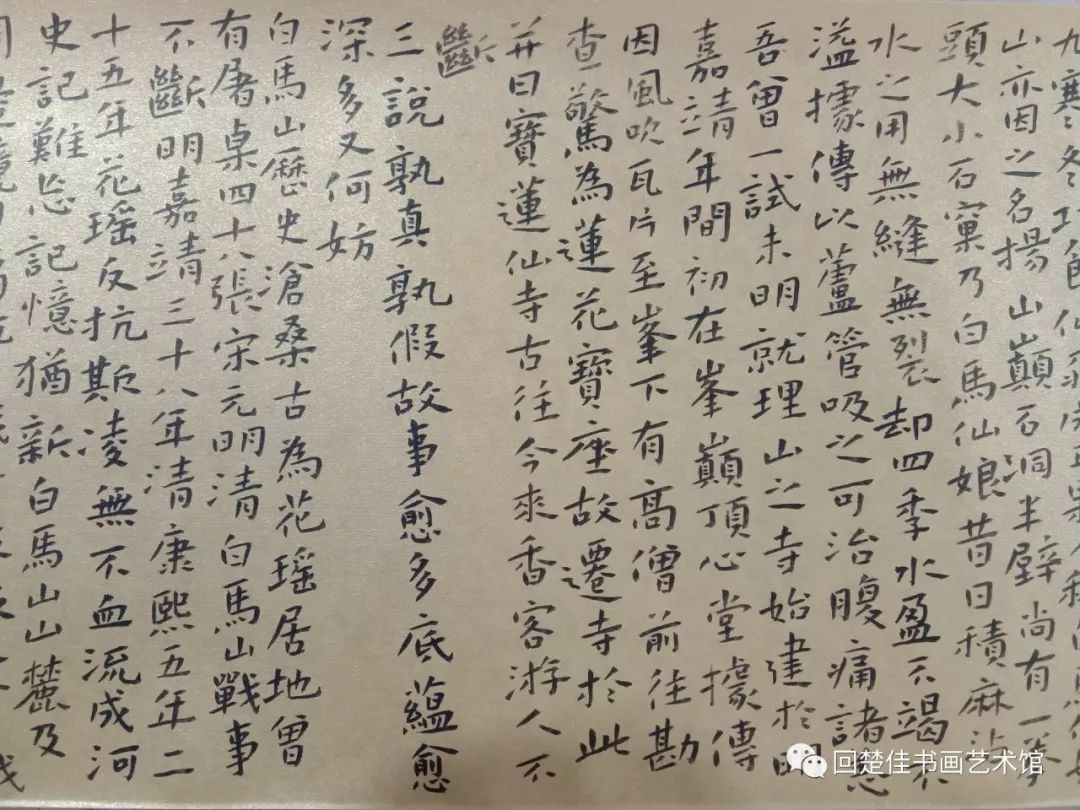 九寒冬巧
山亦因之名揚山山巔石洞半壁尚有一
頭大小石窠乃白馬仙娘昔日積麻
水之用無縫無裂却四季水盈不竭不
溢據傳以蘆管吸之可治腹痛諸恙
吾曾一試未明就理山之寺始建於明
嘉靖年間初在峯巔頂心堂據傳
因風吹瓦片至峯下有高僧前往勘
查驚為蓮花寶座故遷寺於此
并曰寶蓮仙寺古往今來香客游人不
斷
三說孰真孰假故事愈多底蘊愈
深多又何妨
白馬山歷史滄桑古為花瑶居地曾
有屠桌四十八張宋元明清白馬山戰事
不斷明嘉靖三十八年清康熙五年二
十五年花瑶反抗斯凌無不血流成河
史記難忘記憶猶新白馬山山麓及
回楚佳书画艺术馆